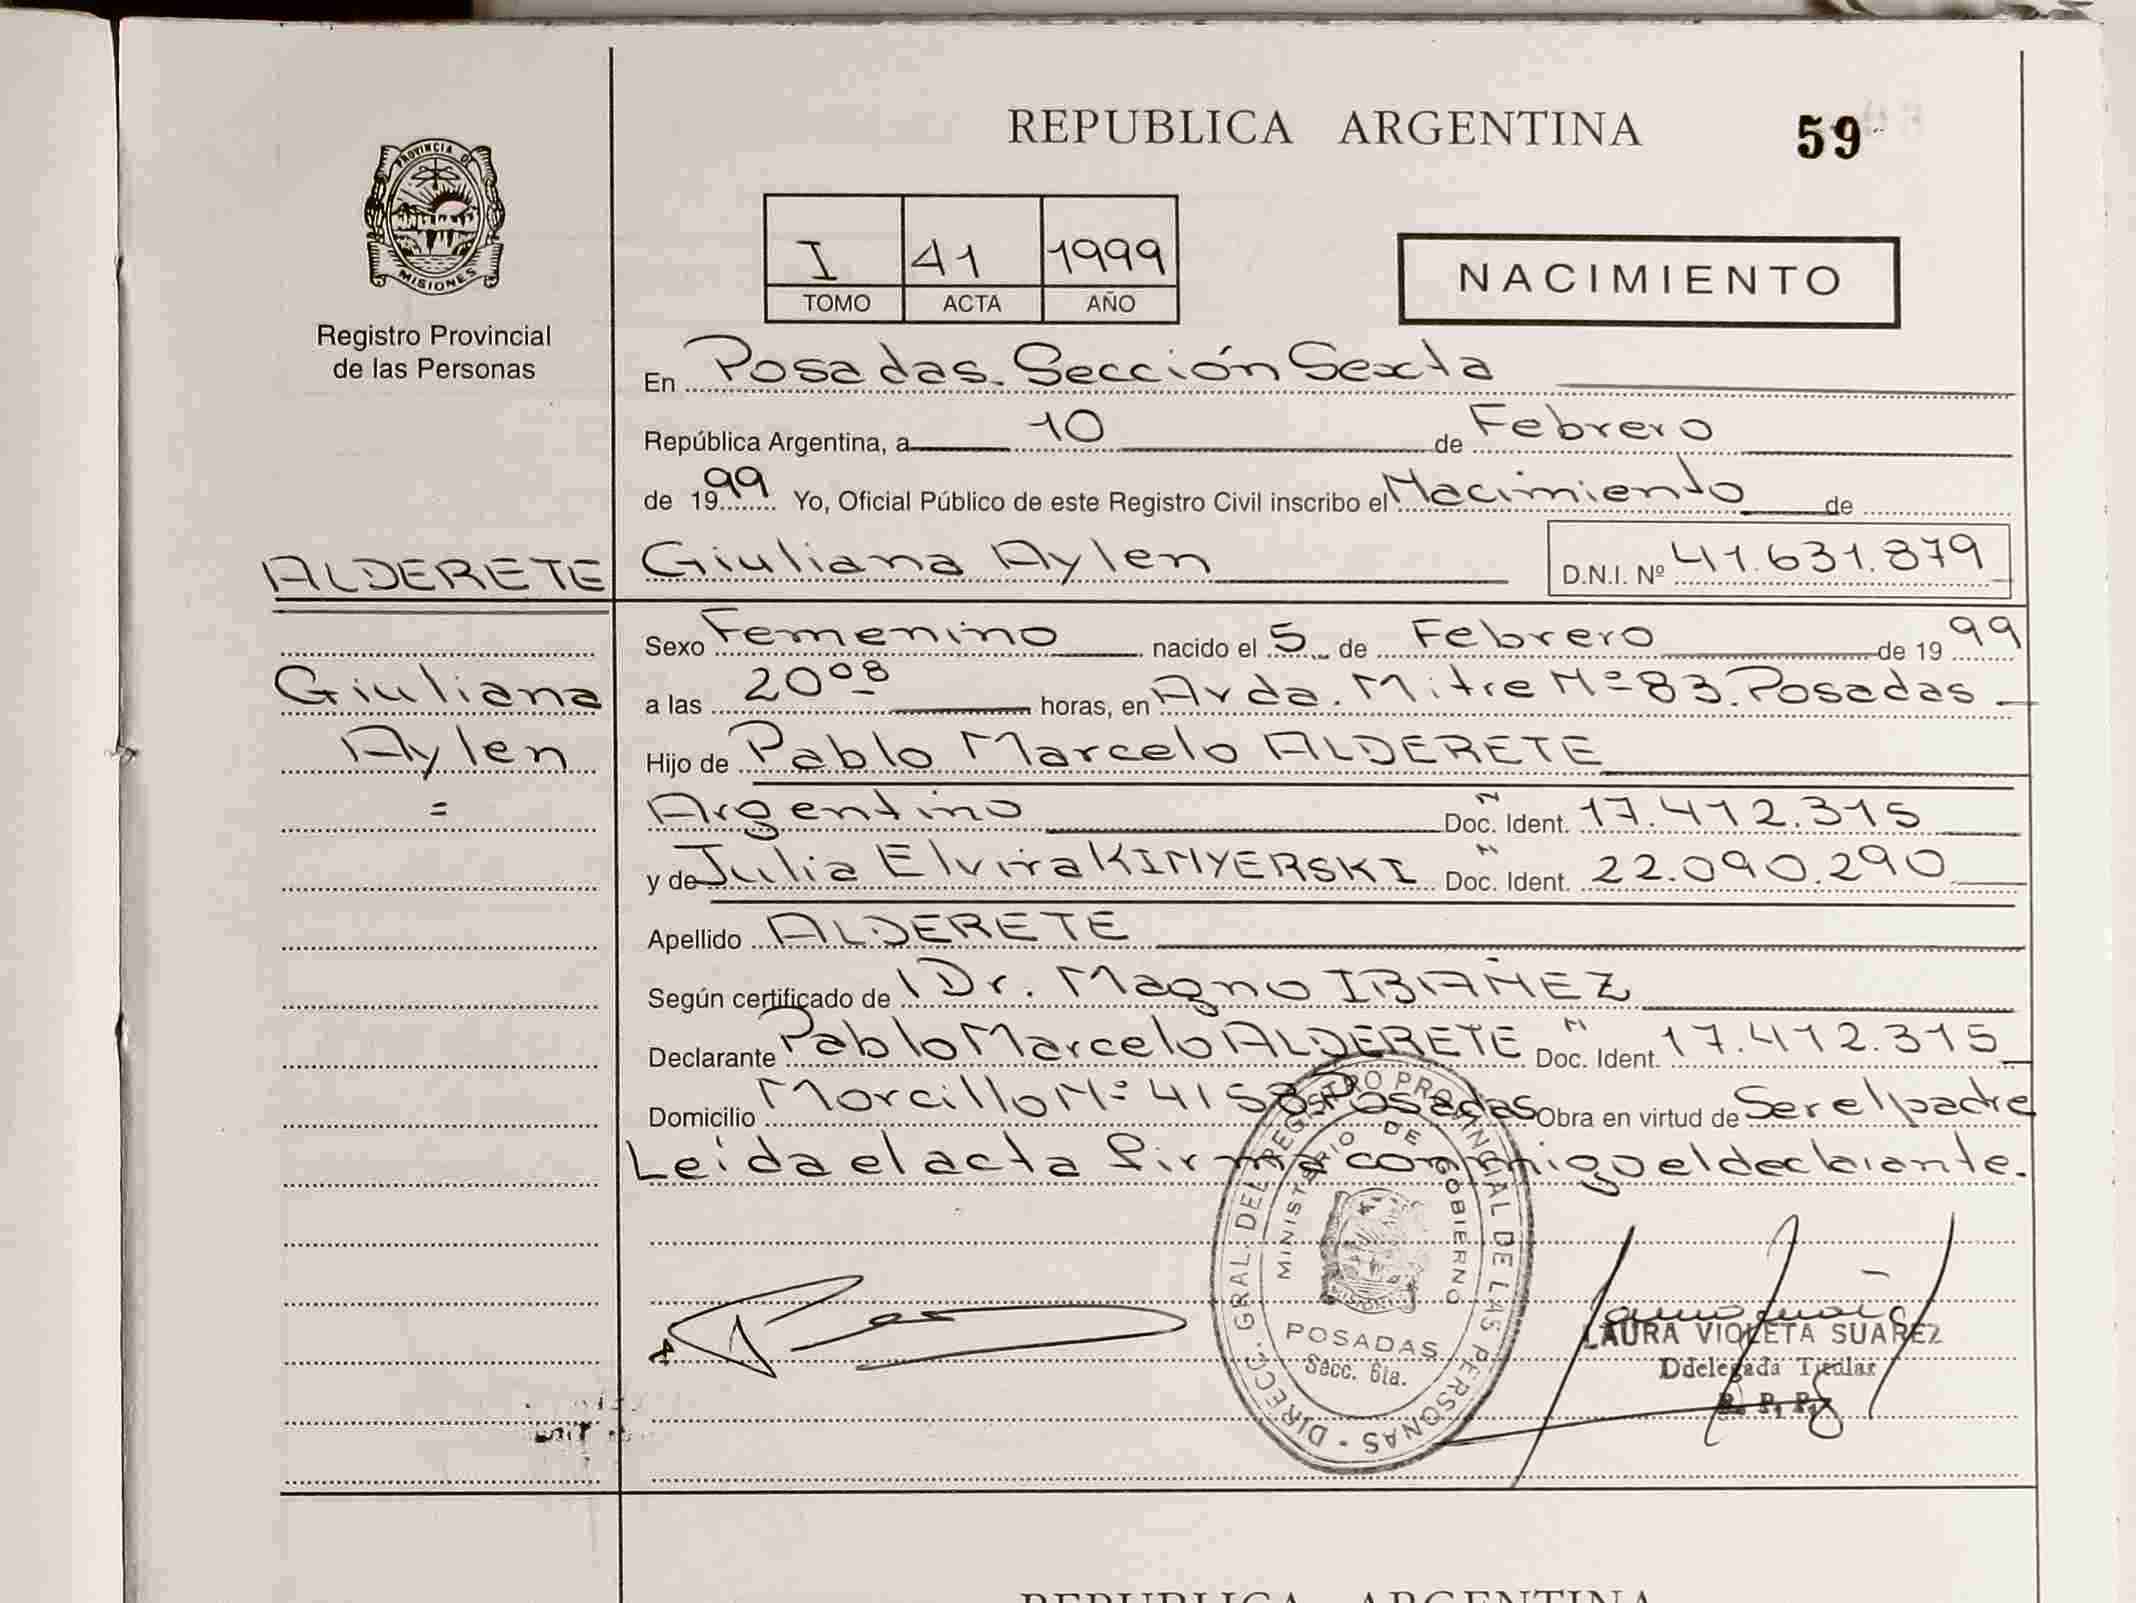 REPUBLICA ARGENTINA
59
PROVINCIA DE
MISIONES
Registro Provincial
de las Personas
I 41 1999
TOMO ACTA AÑO
NACIMIENTO
En Posadas. Sección Sexta
República Argentina, a 10 de Febrero
de 1999 Yo, Oficial Público de este Registro Civil inscribo el Nacimiento de
ALDERETE Giuliana Aylen D.N.I. Nº 41.631.879
Sexo Femenino nacido el 5 de Febrero de 1999
Giuliana a las 20 08 horas, en Avda. Mitre Nº 83. Posadas
Aylen Hijo de Pablo Marcelo ALDERETE
= Argentino Doc. Ident. 17.412.315
y de Julia Elvira KINYERSKI Doc. Ident. 22.090.290
Apellido ALDERETE
Según certificado de Dr. Magno IBAÑEZ
Declarante Pablo Marcelo ALDERETE Doc. Ident. 17.412.315
Domicilio Morcillo Nº 4158 Posadas Obra en virtud de Ser el padre
Leída el acta firma conmigo el declarante.
DIRECC. GRAL. DEL REGISTRO PROVINCIAL DE LAS PERSONAS
MINISTERIO DE GOBIERNO
MISIONES
POSADAS
Secc. 6ta.
LAURA VIOLETA SUAREZ
Ddelegada Titular
R. P. P.
REPUBLICA ARGENTINA